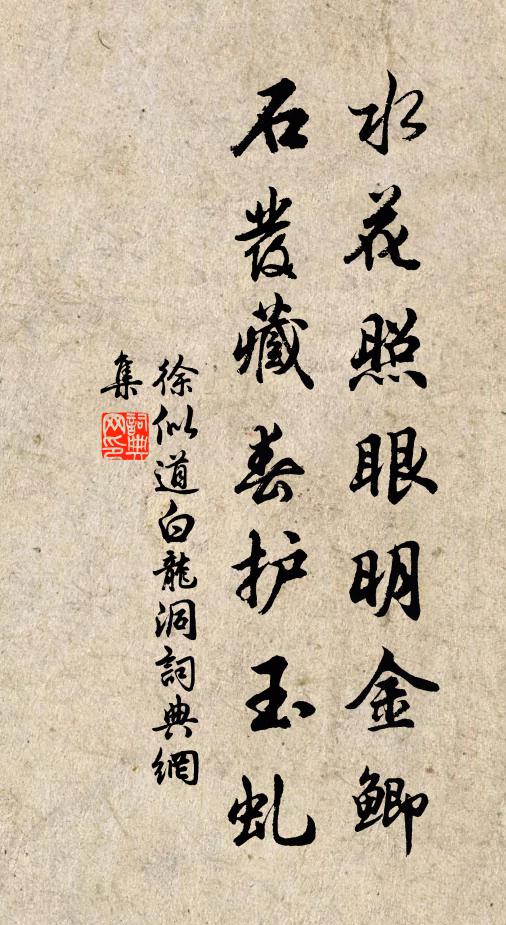 水花照眼明金鯽
石發藏春护玉虬
徐似道白龍洞詞典網
集
詞典网印